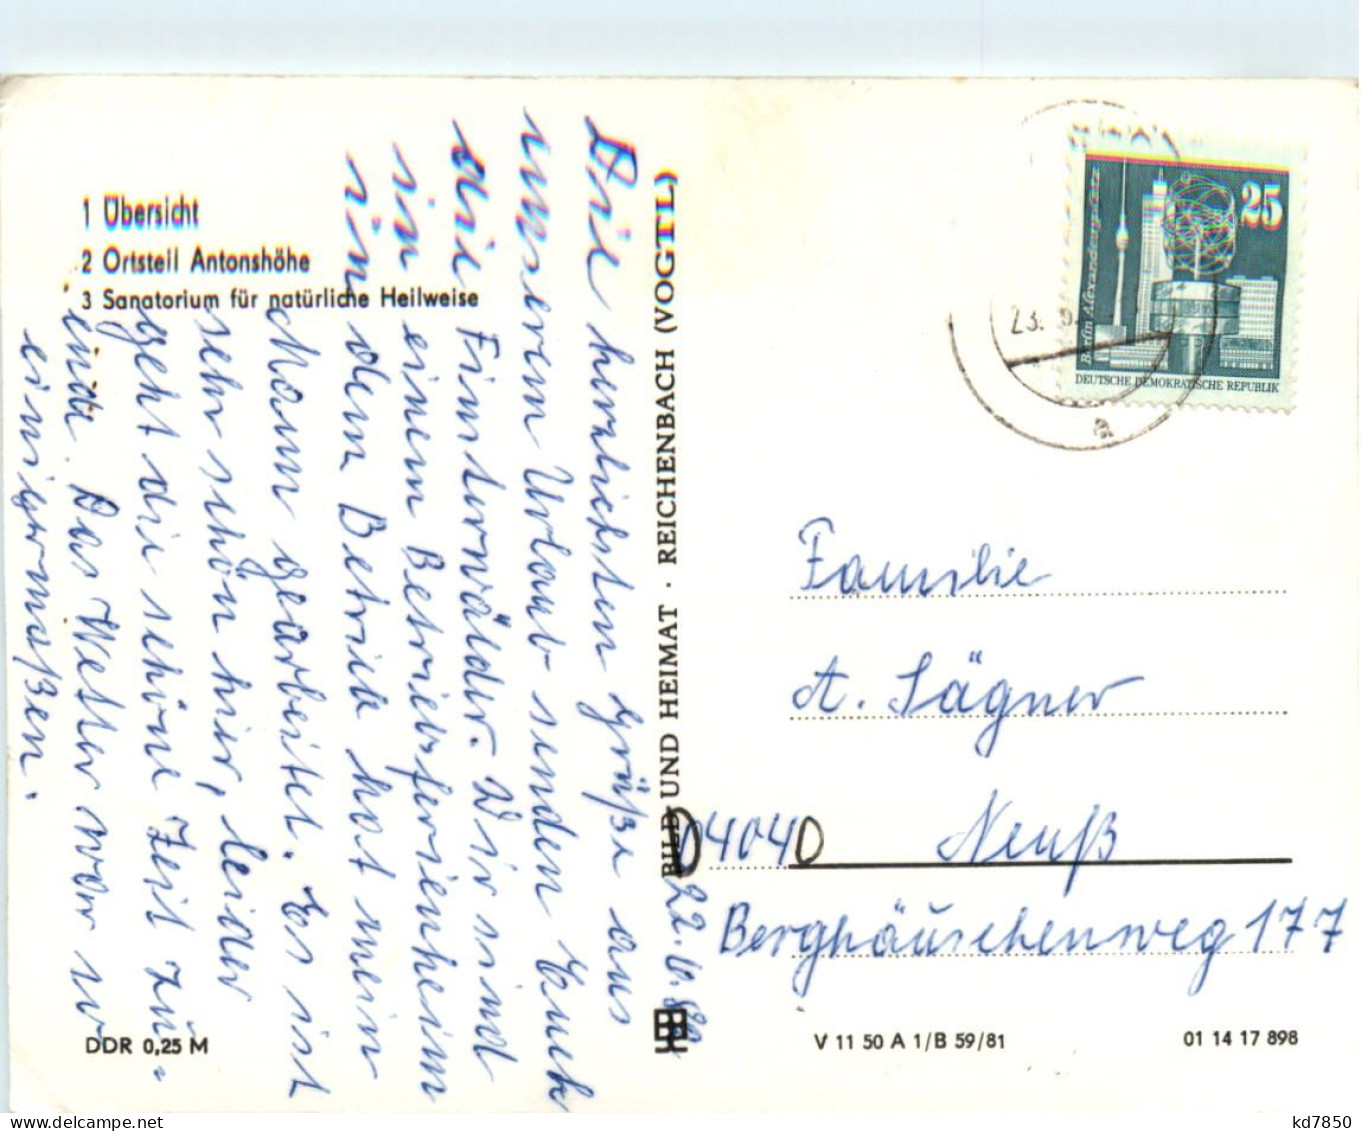 1 Übersicht
2 Ortsteil Antonshöhe
3 Sanatorium für natürliche Heilweise
Die herzlichsten Grüße aus
unserem Urlaub senden Euch
die Finsterwälder. Wir sind
in einem Betriebsferienheim
in dem Betrieb hat mein
Mann gearbeitet. Es ist
sehr schön hier, leider
geht die schöne Zeit zu-
ende. Das Wetter war so
einigermaßen.
BILD UND HEIMAT · REICHENBACH (VOGTL)
22. 6.
25
Berlin Alexanderplatz
DEUTSCHE DEMOKRATISCHE REPUBLIK
23.
a
Familie
A. Sägner
D 4040 Neuß
Berghäuschenweg 177
DDR 0,25 M
V 11 50 A 1/B 59/81
01 14 17 898
kd7850